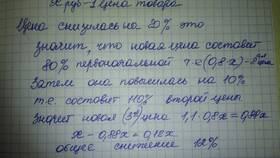 X руб - 1 цена товара
Цена снизилась на 20% это
значит, что новая цена составит
80% первоначальной т.е (0,8х) - 2
Затем она повысилась на 10%
т.е. составит 110% второй цены
Значит новая (3я) цена 1,1·0,8х = 0,88х
х - 0,88х = 0,12х
общее снижение 12%